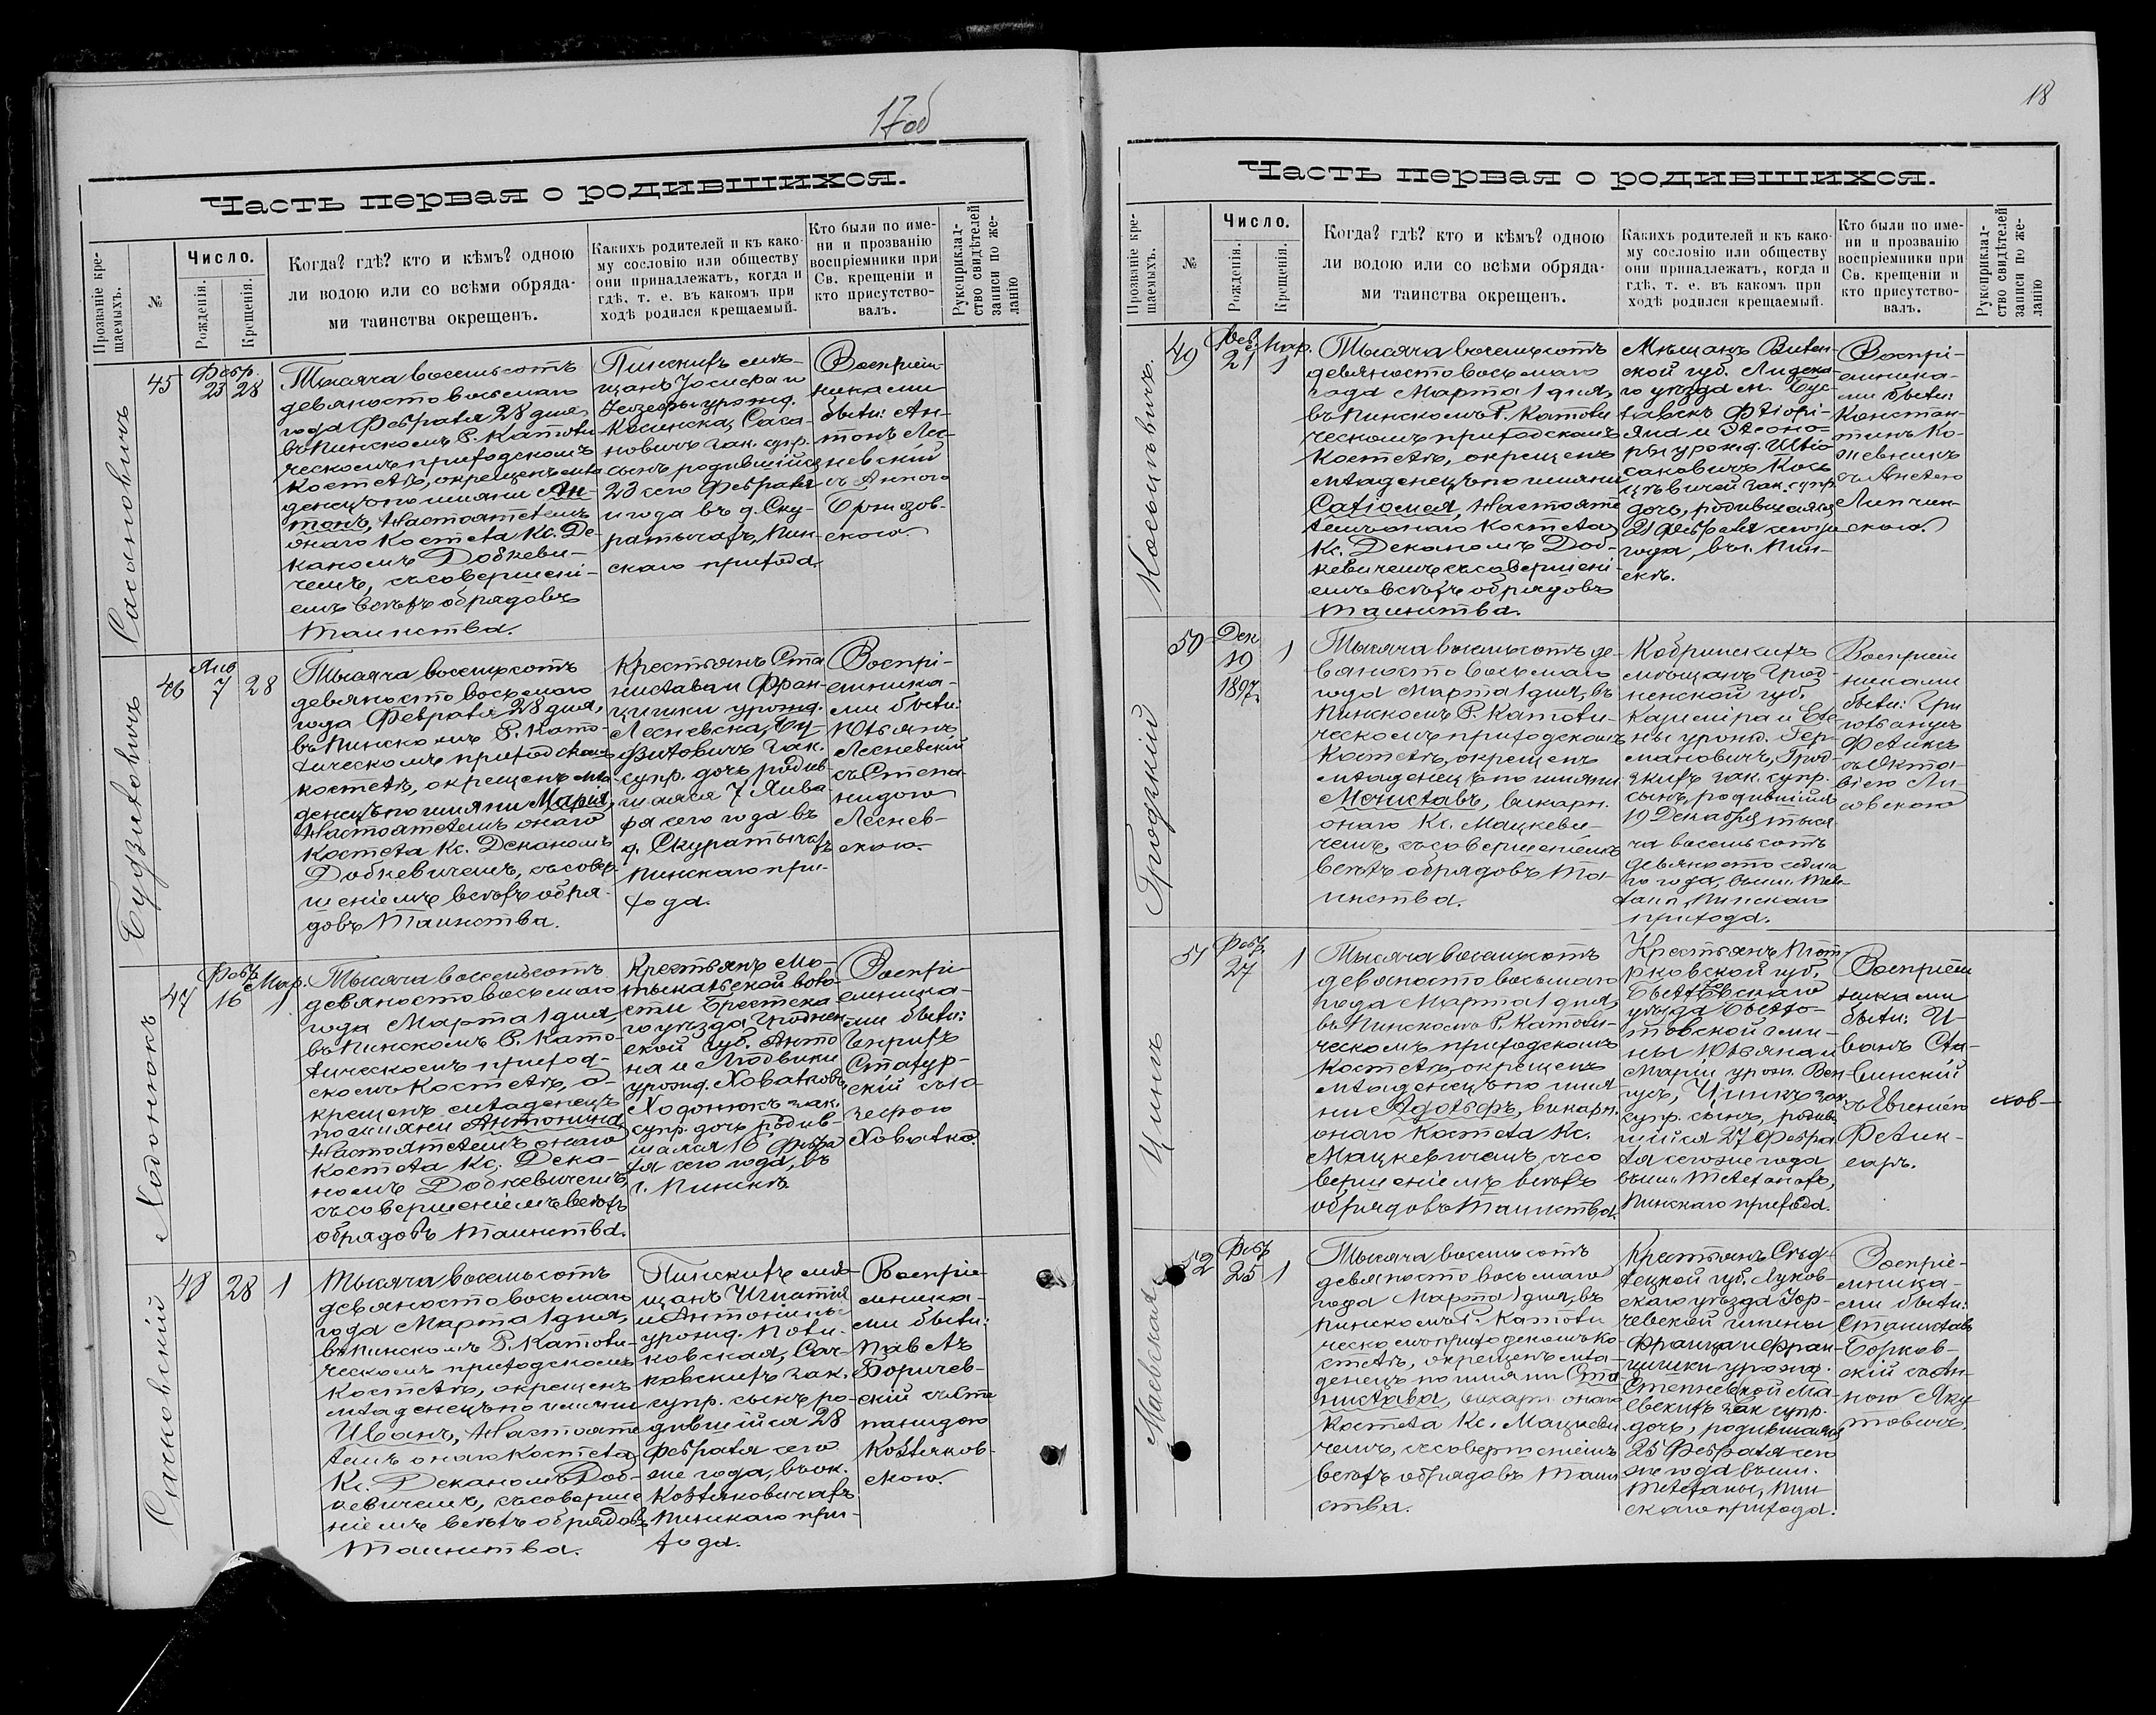 17об
Часть первая о родившихся.
Прозваніе крещаемыхъ.
№
Число.
Рожденія.
Крещенія.
Когда? гдѣ? кто и кѣмъ? одною
ли водою или со всѣми обряда-
ми таинства окрещенъ.
Какихъ родителей и къ како-
му сословію или обществу
они принадлежатъ, когда и
гдѣ, т. е. въ какомъ при
ходѣ родился крещаемый.
Кто были по име-
ни и прозванію
воспріемники при
Св. крещеніи и
кто присутство-
валъ.
Рукоприклад-
ство свидѣтелей
записи по же-
ланію
Сасиновичъ
45
Февр.
23 28
Тысяча восемьсотъ
девяносто восьмаго
года Февраля 28 дня,
въ Пинскомъ Р. Католи
ческомъ приходскомъ
костелѣ, окрещенъ мла
денецъ по имяни Ан-
тонъ, Настоятелемъ
онаго костела Кс. Де-
каномъ Добкеви-
чемъ, съ совершені-
емъ всѣхъ обрядовъ
Таинства.
Пинскихъ мѣ-
щанъ Іосифа и
Іозефы урожд.
Косинска, Саса-
новичъ зак. супр.
сынъ родившійся
23 сего Февраля
и года въ д. Ску-
ратычахъ, Пин-
скаго прихода.
Воспріем
никами
были: Ан-
тонъ Лес-
невскій
съ Анною
Брнозов-
скою.
46
Янв
7 28
Тысяча восемьсотъ
девяносто восьмаго
года Февраля 28 дня,
въ Пинскомъ Р. Като-
лическомъ приходскомъ
костелѣ, окрещенъ мла
денецъ по имяни Марія,
Настоятелемъ онаго
костела Кс. Деканомъ
Добкевичемъ, съ совер
шеніемъ всѣхъ обря-
довъ Таинства.
Крестьянъ Ста
нислава и Фран-
цишки урожд.
Лесневска,
зак.
супр. дочь родив-
шаяся 7 Янва
ря сего года въ
д. Скуратычахъ
Пинскаго при-
хода.
Воспрі-
емника-
ми были:
Юльянъ
Лесневскій
съ Степа-
нидою
Леснев-
скою.
Ходонюкъ
47
Февр. Мар.
16 1
Тысяча восемьсотъ
девяносто восьмаго
года Марта 1 дня,
въ Пинскомъ Р. Като-
лическомъ приход-
скомъ Костелѣ, о-
крещенъ младенецъ
по имяни Антонина,
Настоятелемъ онаго
костела Кс. Дека-
номъ Добкевичемъ,
съ совершеніемъ всѣхъ
обрядовъ Таинства.
Крестьянъ Мо-
тыкальской воло-
сти Брестска
го уѣзда Гроднен
ской губ. Анто
на и Людвики
урожд. Ховалковъ,
Ходонюкъ зак.
супр. дочь родив-
шаяся 16 Февра
ля сего года, въ
г. Пинскѣ.
Воспрі-
емника-
ми были:
Генрихъ
съ Ю-
зефою
Ховалко.
Сачковскій
48 28 1
Тысяча восемьсотъ
девяносто восьмаго
года Марта 1 дня,
въ Пинскомъ Р. Католи-
ческомъ приходскомъ
костелѣ, окрещенъ
младенецъ по имяни
Иванъ, Настояте
лемъ онаго костела
Кс. Деканомъ Доб-
кевичемъ, съ соверше
ніемъ всѣхъ обрядовъ
Таинства.
Пинскихъ мѣ
щанъ Игнатія
и Антонины
урожд. Поли-
ковская, Сач-
ковскихъ зак.
супр. сынъ ро-
дившійся 28
Февраля сего
же года, въ ок.
Козляковичахъ
Пинскаго при-
хода.
Воспріе-
мника-
ми были:
Павелъ
Боричев-
скій съ Сте
панидою
Козляков-
скою.
18
Часть первая о родившихся.
Прозваніе крещаемыхъ.
№
Число.
Рожденія.
Крещенія.
Когда? гдѣ? кто и кѣмъ? одною
ли водою или со всѣми обряда-
ми таинства окрещенъ.
Какихъ родителей и къ како-
му сословію или обществу
они принадлежатъ, когда и
гдѣ, т. е. въ какомъ при
ходѣ родился крещаемый.
Кто были по име-
ни и прозванію
воспріемники при
Св. крещеніи и
кто присутство-
валъ.
Рукоприклад-
ство свидѣтелей
записи по же-
ланію
49
Фев. Мар.
21 1
Тысяча восемьсотъ
девяносто восьмаго
года Марта 1 дня,
въ Пинскомъ Р. Католи
ческомъ приходскомъ
Костелѣ, окрещенъ
младенецъ по имяни
Саломея, Настояте
лемъ онаго костела
Кс. Деканомъ Доб-
кевичемъ съ совершені
емъ всѣхъ обрядовъ
Таинства.
Мѣщанъ Вилен-
ской губ. Лидска-
го уѣзда м.
Флорі-
яна и Элеоно-
ры урожд.
зак. супр.
дочь, родившаяся
21 Февраля сего
года, въ г. Пин-
скѣ.
Воспрі-
емника-
ми были:
Констан-
тинъ Ко-
жевникъ
съ Анелею
Липчин-
скою.
Гродзкій
50 Дек
19 1
1897.
Тысяча восемьсотъ де-
вяносто восьмаго
года Марта 1 дня, въ
Пинскомъ Р. Католи-
ческомъ приходскомъ
Костелѣ, окрещенъ
младенецъ по имяни
Мечиславъ, викарн.
онаго Кс. Мацкеви-
чемъ, съ совершеніемъ
всѣхъ обрядовъ Та-
инства.
Кобринскихъ
мѣщанъ Грод-
ненской губ.
Казиміра и Еле-
ны урожд. Гер-
мановичъ, Грод-
зкихъ зак. супр.
сынъ, родившійся
19 Декабря тыся
ча восемьсотъ
девяносто седма
го года, въ им. Теле-
ханы, Пинскаго
прихода.
Воспріем
никами
были:
Феликсъ
съ Окта-
віею Ли-
совскою
Цинъ
51 Февр.
27 1
Тысяча восемьсотъ
девяносто восьмаго
года Марта 1 дня,
въ Пинскомъ Р. Католи-
ческомъ приходскомъ
Костелѣ, окрещенъ
младенецъ по имя-
ни Адольфъ, викарн.
онаго костела Кс.
Мацкевичемъ, съ со
вершеніемъ всѣхъ
обрядовъ Таинства.
Крестьянъ Пет
рковской губ.
уѣзда
гми-
ны Юльяна и
Маріи урож. Вен-
гусъ, Цинъ зак.
супр. сынъ, родив
шійся 27 Февра
ля сего же года
въ им. Телеханахъ,
Пинскаго прихода.
Воспріем
никами
были: И-
ванъ Сла-
винскій
съ Евгеніею
Фелик-
сіаръ.
Маевская
52 Февр
25 1
Тысяча восемьсотъ
девяносто восьмаго
года Марта 1 дня, въ
Пинскомъ Р. Католи
ческомъ приходскомъ Ко-
стелѣ, окрещенъ мла-
денецъ по имяни Ста-
нислава, викарн. онаго
Костела Кс. Мацкеви
чемъ, съ совершеніемъ
всѣхъ обрядовъ Таин
ства.
Крестьянъ Сѣд-
лецкой губ. Луков-
скаго уѣзда
гмины
Франца и Фран-
цишки урожд.
Ма-
евскихъ зак супр.
дочь, родившаяся
25 Февраля сего
же года въ им.
Телеханы, Пин
скаго прихода.
Воспріе-
мника-
ми были:
Станиславъ
Борков-
скій съ Ан-
ною Яку
товичъ.